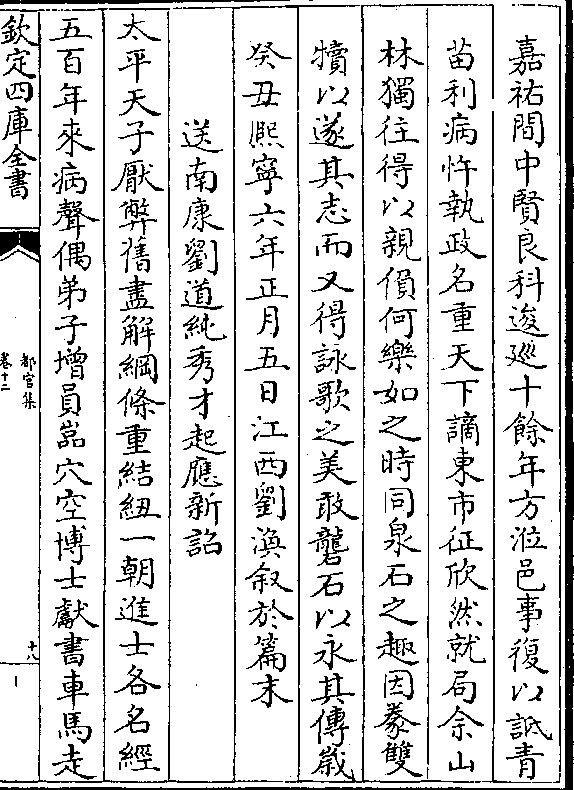 嘉祐間中賢良科逡廵十餘年方涖邑事復以詆青
苗利病忤執政名重天下謫東市征欣然就局余山
林獨往得以親儐何樂如之時同泉石之趣因豢雙
犢以遂其志而又得詠歌之美敢礱石以永其傳嵗
癸丑熙寧六年正月五日江西劉渙叙於篇末
送南康劉道純秀才起應新詔
太平天子厭弊舊盡解綱條重結紐一朝進士各名經
五百年來病聲偶弟子增員嵓穴空博士獻書車馬走
欽定四庫全書
都官集
卷十二
十八